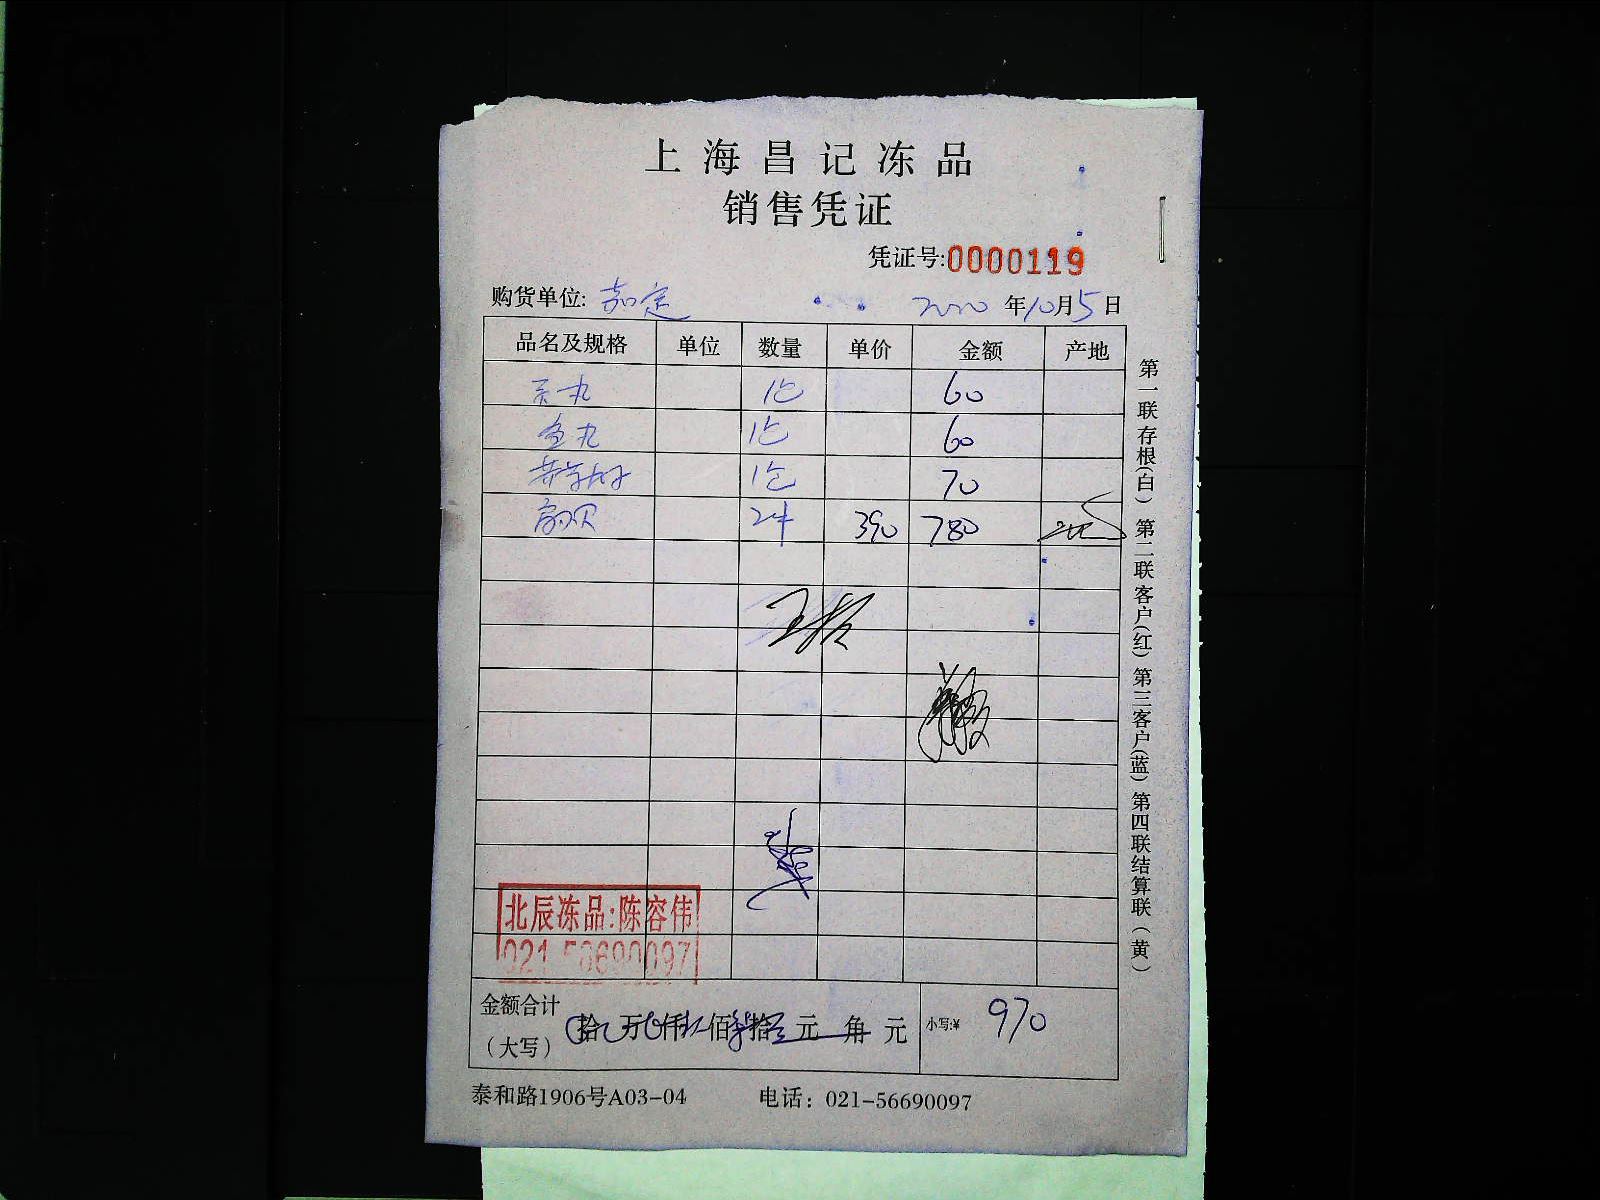 上海昌记冻品
销售凭证
凭证号:0000119
购货单位: 嘉定 2020 年10月5日
品名及规格 单位 数量 单价 金额 产地
贡丸 1包 60
鱼丸 1包 60
1包 70
扇贝 2件 390 780
北辰冻品:陈容伟
021-56690097
金额合计
(大写) 拾 万 仟 佰 拾 元 角 元 小写:¥ 970
泰和路1906号A03-04 电话: 021-56690097
第一联存根(白) 第二联客户(红) 第三客户(蓝) 第四联结算联(黄)